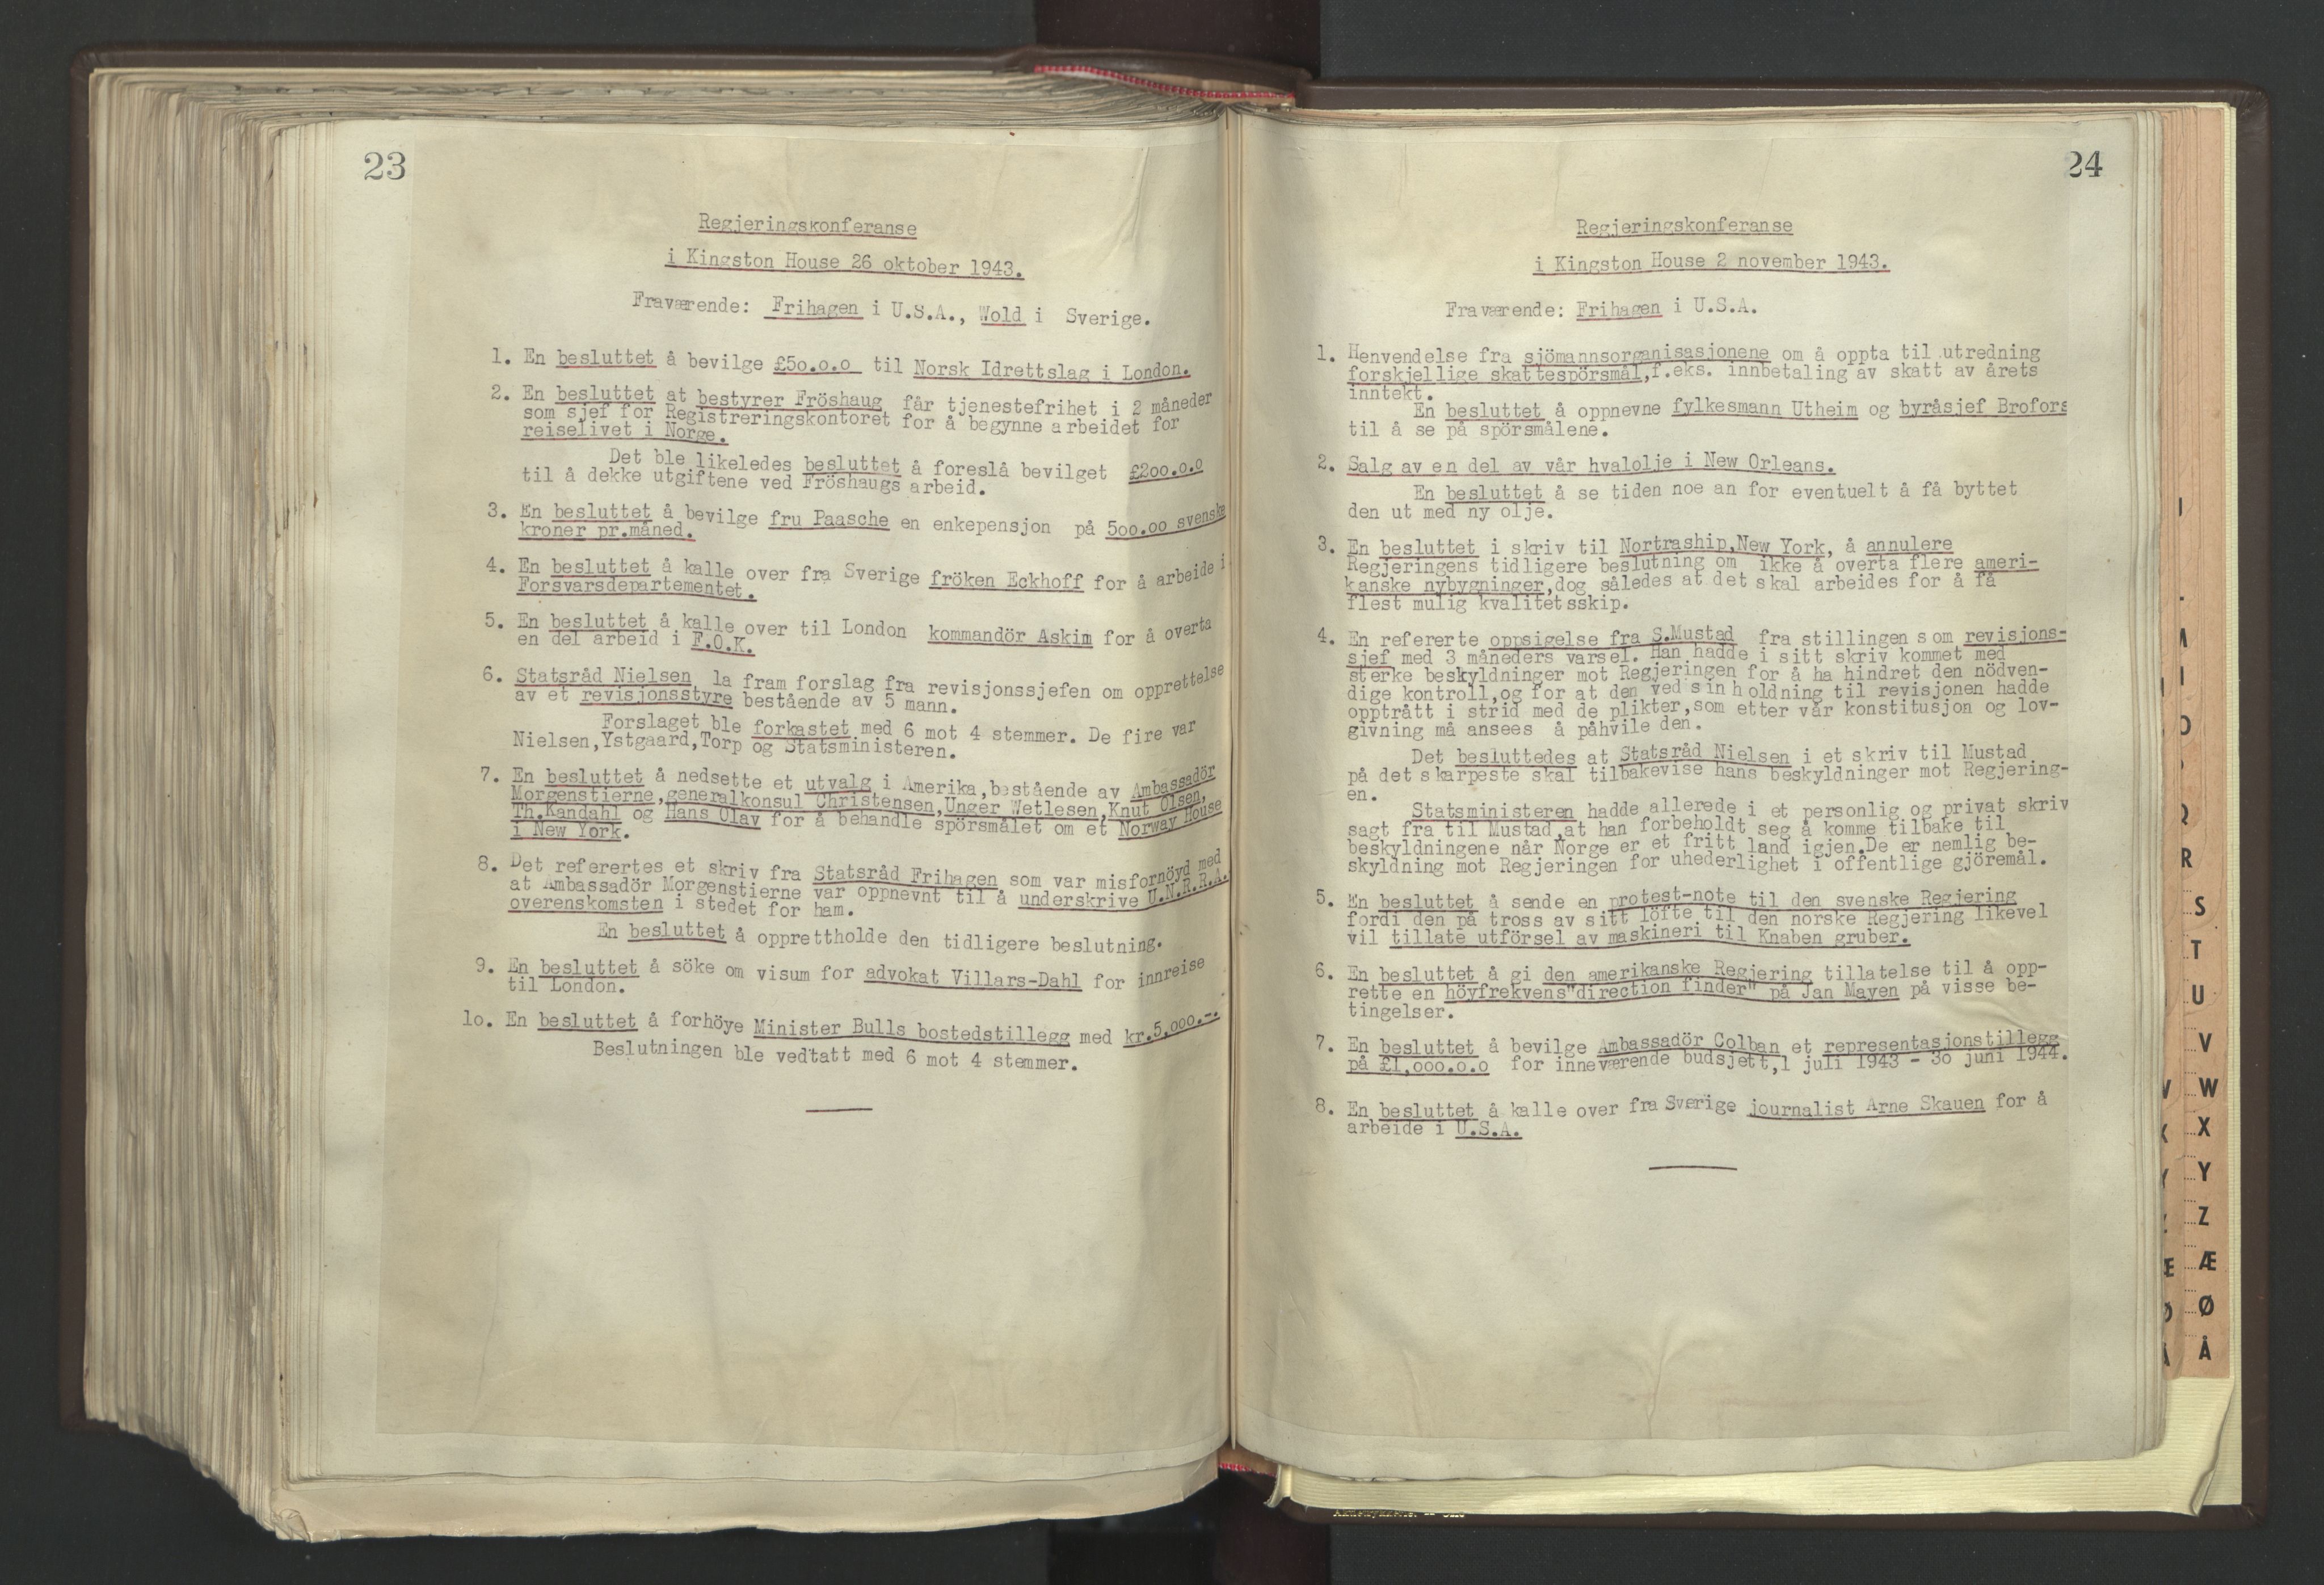 23
Regjeringskonferanse
i Kingston House 26 oktober 1943.
Fraværende: Frihagen i U.S.A., Wold i Sverige.
1. En besluttet å bevilge £5o.o.o til Norsk Idrettslag i London.
2. En besluttet at bestyrer Fröshaug får tjenestefrihet i 2 måneder
som sjef for Registreringskontoret for å begynne arbeidet for
reiselivet i Norge.
Det ble likeledes besluttet å foreslå bevilget £2oo.o.o
til å dekke utgiftene ved Fröshaugs arbeid.
3. En besluttet å bevilge fru Paasche en enkepensjon på 5oo.oo svenske
kroner pr.måned.
4. En besluttet å kalle over fra Sverige fröken Eckhoff for å arbeide i
Forsvarsdepartementet.
5. En besluttet å kalle over til London kommandör Askim for å overta
en del arbeid i F.O.K.
6. Statsråd Nielsen la fram forslag fra revisjonssjefen om opprettelse
av et revisjonsstyre bestående av 5 mann.
Forslaget ble forkastet med 6 mot 4 stemmer. De fire var
Nielsen,Ystgaard,Torp og Statsministeren.
7. En besluttet å nedsette et utvalg i Amerika,bestående av Ambassadör
Morgenstierne,generalkonsul Christensen,Unger Wetlesen,Knut Olsen,
Th.Kandahl og Hans Olav for å behandle spörsmålet om et Norway House
i New York.
8. Det referertes et skriv fra Statsråd Frihagen som var misfornöyd med
at Ambassadör Morgenstierne var oppnevnt til å underskrive U.N.R.R.A.
overenskomsten i stedet for ham.
En besluttet å opprettholde den tidligere beslutning.
9. En besluttet å söke om visum for advokat Villars-Dahl for innreise
til London.
lo. En besluttet å forhöye Minister Bulls bostedstillegg med kr.5,ooo.-.
Beslutningen ble vedtatt med 6 mot 4 stemmer.
24
Regjeringskonferanse
i Kingston House 2 november 1943.
Fraværende: Frihagen i U.S.A.
1. Henvendelse fra sjömannsorganisasjonene om å oppta til utredning
forskjellige skattespörsmål,f.eks. innbetaling av skatt av årets
inntekt.
En besluttet å oppnevne fylkesmann Utheim og byråsjef Brofors
til å se på spörsmålene.
2. Salg av en del av vår hvalolje i New Orleans.
En besluttet å se tiden noe an for eventuelt å få byttet
den ut med ny olje.
3. En besluttet i skriv til Nortraship,New York, å annulere
Regjeringens tidligere beslutning om ikke å overta flere ameri-
kanske nybygninger,dog således at det skal arbeides for å få
flest mulig kvalitetsskip.
4. En refererte oppsigelse fra S.Mustad fra stillingen som revisjons-
sjef med 3 måneders varsel. Han hadde i sitt skriv kommet med
sterke beskyldninger mot Regjeringen for å ha hindret den nödven-
dige kontroll,og for at den ved sin holdning til revisjonen hadde
opptrått i strid med de plikter,som etter vår konstitusjon og lov-
givning må ansees å påhvile den.
Det besluttedes at Statsråd Nielsen i et skriv til Mustad
på det skarpeste skal tilbakevise hans beskyldninger mot Regjering-
en.
Statsministeren hadde allerede i et personlig og privat skriv
sagt fra til Mustad,at han forbeholdt seg å komme tilbake til
beskyldningene når Norge er et fritt land igjen.De er nemlig be-
skyldning mot Regjeringen for uhederlighet i offentlige gjöremål.
5. En besluttet å sende en protest-note til den svenske Regjering
fordi den på tross av sitt löfte til den norske Regjering likevel
vil tillate utförsel av maskineri til Knaben gruber.
6. En besluttet å gi den amerikanske Regjering tillatelse til å opp-
rette en höyfrekvens"direction finder" på Jan Mayen på visse be-
tingelser.
7. En besluttet å bevilge Ambassadör Colban et representasjonstillegg
på £1,ooo.o.o for inneværende budsjett,1 juli 1943 - 3o juni 1944.
8. En besluttet å kalle over fra Sverige journalist Arne Skauen for å
arbeide i U.S.A.
R
S
T
U
V
W
X
Y
Z
Æ
Ø
Å